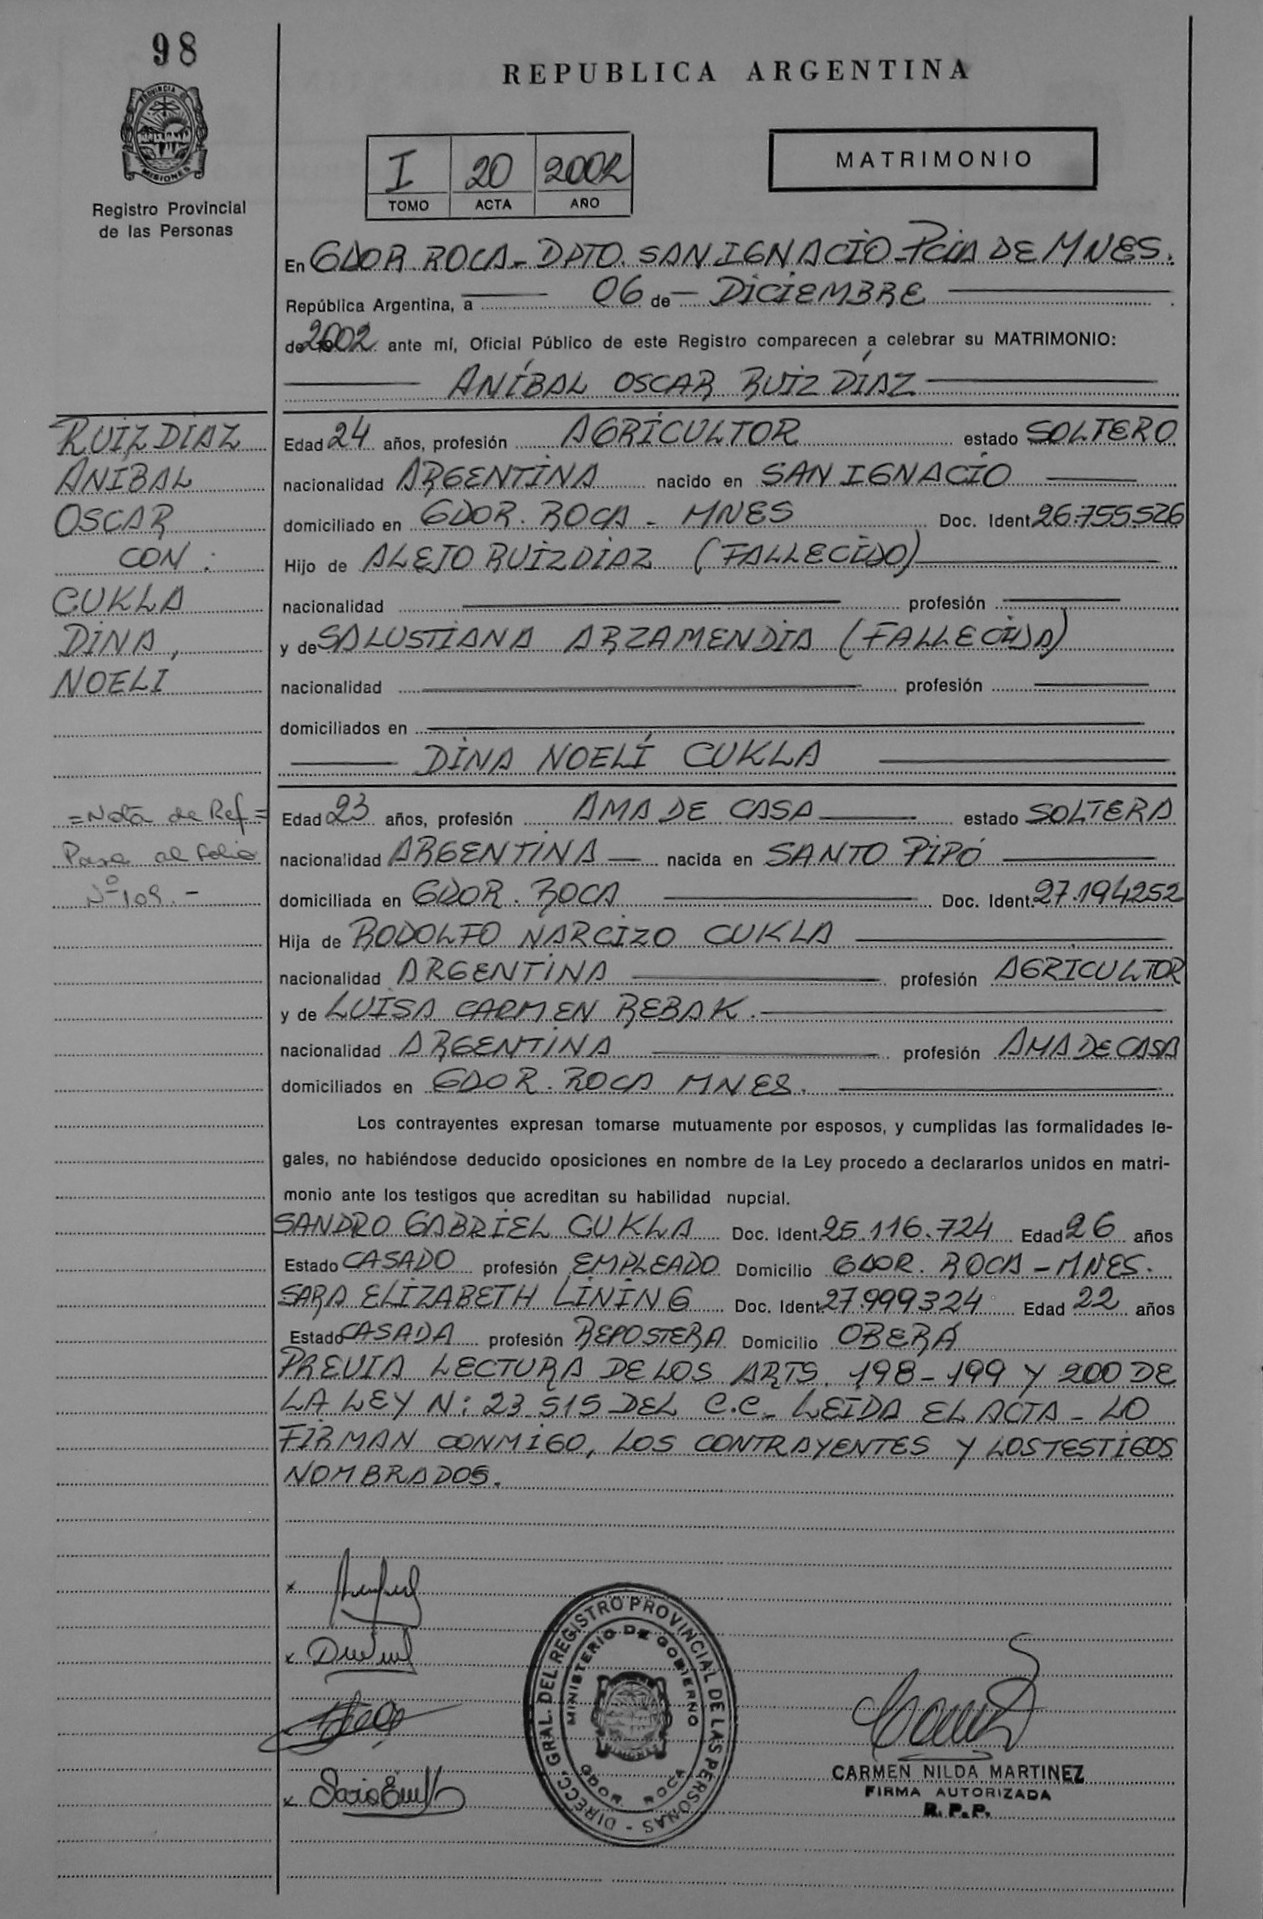 98
REPUBLICA ARGENTINA
PROVINCIA DE MISIONES
Registro Provincial
de las Personas
I 20 2002
TOMO ACTA AÑO
MATRIMONIO
En GDOR. ROCA - DPTO. SAN IGNACIO - PCIA DE MNES.
República Argentina, a 06 de DICIEMBRE
de 2002 ante mí, Oficial Público de este Registro comparecen a celebrar su MATRIMONIO:
ANÍBAL OSCAR RUIZ DÍAZ
RUIZ DIAZ
ANIBAL
OSCAR
CON :
CUKLA
DINA,
NOELI
Edad 24 años, profesión AGRICULTOR estado SOLTERO
nacionalidad ARGENTINA nacido en SAN IGNACIO
domiciliado en GDOR. ROCA - MNES Doc. Ident. 26.755.526
Hijo de ALEJO RUIZ DIAZ (FALLECIDO)
nacionalidad profesión
y de SALUSTIANA ARZAMENDIA (FALLECIDA)
nacionalidad profesión
domiciliados en
DINA NOELÍ CUKLA
= Nota de Ref. =
Pasa al folio
Nº 109. -
Edad 23 años, profesión AMA DE CASA estado SOLTERA
nacionalidad ARGENTINA nacida en SANTO PIPÓ
domiciliada en GDOR. ROCA Doc. Ident. 27.194252
Hija de RODOLFO NARCIZO CUKLA
nacionalidad ARGENTINA profesión AGRICULTOR
y de LUISA CARMEN REBAK.
nacionalidad ARGENTINA profesión AMA DE CASA
domiciliados en GDOR. ROCA MNES.
Los contrayentes expresan tomarse mutuamente por esposos, y cumplidas las formalidades le-
gales, no habiéndose deducido oposiciones en nombre de la Ley procedo a declararlos unidos en matri-
monio ante los testigos que acreditan su habilidad nupcial.
SANDRO GABRIEL CUKLA Doc. Ident. 25.116.724 Edad 26 años
Estado CASADO profesión EMPLEADO Domicilio GDOR. ROCA - MNES.
SARA ELIZABETH LINING Doc. Ident. 27.999324 Edad 22 años
Estado CASADA profesión REPOSTERA Domicilio OBERÁ
PREVIA LECTURA DE LOS ARTS. 198 - 199 Y 200 DE
LA LEY N: 23.515 DEL C.C. LEIDA EL ACTA - LO
FIRMAN CONMIGO, LOS CONTRAYENTES Y LOS TESTIGOS
NOMBRADOS.
DIRECC. GRAL. DEL REGISTRO PROVINCIAL DE LAS PERSONAS -
MINISTERIO DE GOBIERNO
GDOR. ROCA
CARMEN NILDA MARTINEZ
FIRMA AUTORIZADA
R.P.P.